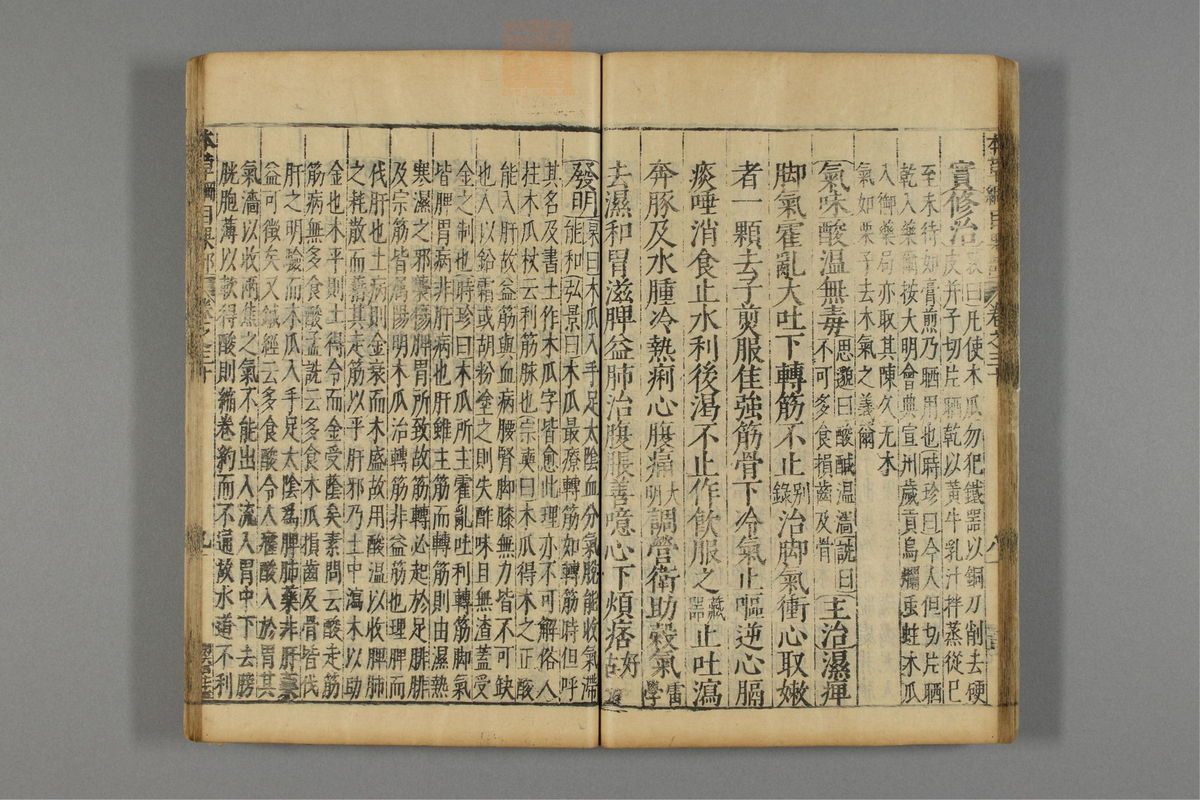 本草綱目果部 卷之三十 八
實修治
斆曰凡使木瓜勿犯鐵器以銅刀削去硬
皮并子切片晒乾以黃牛乳汁拌蒸從巳
至未待如膏煎乃晒用也時珍曰今人但切片晒
乾入藥爾按大明會典宣州歲貢烏爛蟲蛀木瓜
入御藥局亦取其陳久无木
氣如栗子去木氣之義爾
氣味酸溫無毒思邈曰酸鹹溫濇詵曰不可多食損齒及骨主治濕痺
脚氣霍亂大吐下轉筋不止別錄治脚氣衝心取嫩
者一顆去子煎服佳強筋骨下冷氣止嘔逆心膈
痰唾消食止水利後渴不止作飲服之藏器止吐瀉
奔豚及水腫冷熱痢心腹痛大明調營衛助穀氣雷學
去濕和胃滋脾益肺治腹脹善噫心下煩痞好古
發明
杲曰木瓜入手足太陰血分氣脫能收氣滯
能和弘景曰木瓜最療轉筋如轉筋時但呼
其名及書土作木瓜字皆愈此理亦不可解俗人
柱木瓜杖云利筋脉也宗奭曰木瓜得木之正酸
能入肝故益筋與血病腰腎脚膝無力皆不可缺
也人以鉛霜或胡粉塗之則失酢味且無渣蓋受
金之制也時珍曰木瓜所主霍亂吐利轉筋脚氣
皆脾胃病非肝病也肝雖主筋而轉筋則由濕熱
寒濕之邪襲傷脾胃所致故筋轉必起於足腓腓
及宗筋皆屬陽明木瓜治轉筋非益筋也理脾而
伐肝也土病則金衰而木盛故用酸溫以收脾肺
之耗散而藉其走筋以平肝邪乃土中瀉木以助
金也木平則土得令而金受蔭矣素問云酸走筋
筋病無多食酸孟詵云多食木瓜損齒及骨皆伐
肝之明驗而木瓜入手足太陰為脾肺藥非肝
益可徵矣又鍼經云多食酸令人癃酸入於胃其
氣濇以收兩焦之氣不能出入流入胃中下去膀
胱胞薄以軟得酸則縮卷約而不通故水道不利
本草綱目果部 卷之三十 九